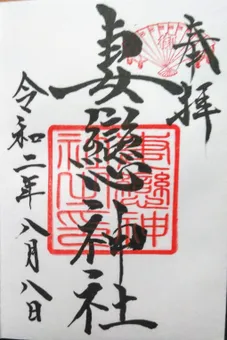 奉拝
妻戀神社
令和二年八月八日
妻戀神社之印